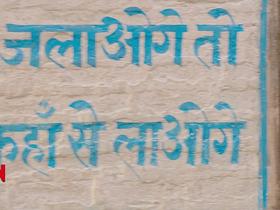 जलाओगे तो
कहाँ से लाओगे